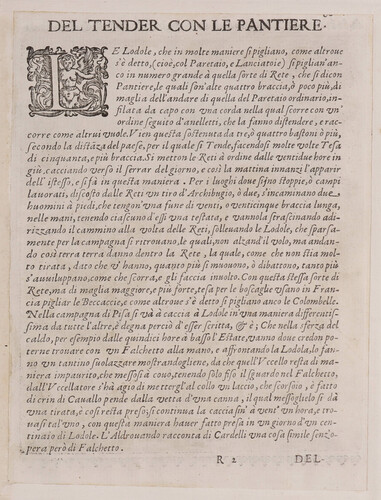 DEL TENDER CON LE PANTIERE.
LE Lodole, che in molte maniere si pigliano, come altroue
s'è detto, (cioè, col Paretaio, e Lanciatoie) si piglian'an-
co in numero grande à quella sorte di Rete, che si dicon
Pantiere, le quali són'alte quattro braccia, ò poco più, di
maglia dell'andare di quella del Paretaio ordinario, in-
filata da capo con vna corda nella qual scorre con vn'
ordine seguito d'anelletti, che la fanno distendere, e rac-
corre come altrui vuole. Vien questa sostenuta da tre, ò quattro bastoni ò più,
secondo la distãza del paese, per il quale si Tende, facendosi molte volte Tesa
di cinquanta, e più braccia. Si metton le Reti à ordine dalle ventidue hore in
giù, cacciando verso il serrar del giorno, e così la mattina innanzi l'apparir
dell'istesso, e si fà in questa maniera. Per i luoghi doue sono stoppie, ò campi
lauorati, discosto dalle Reti vn tiro d'Archibugio, ò due, s'incaminano due
huomini à piedi, che tengon'vna fune di venti, o venticinque braccia lunga,
nelle mani, tenendo ciascuno d'essi vna testata, e vannola strascinando adi-
rizzando il cammino alla volta delle Reti, solleuando le Lodole, che sparsa-
mente per la campagna si ritrouano, le quali non alzand'il volo, ma andan-
do così terra terra danno dentro la Rete, la quale, come che non stia mol-
to tirata, dato che v'hanno, quanto più si muouono, ò dibattono, tanto più
s'auuiluppano, come che scorra, e gli faccia inuolto. Con questa stessa sorte di
Rete, ma di maglia maggiore, e più forte, tesa per le boscaglie vsano in Fran-
cia pigliar le Beccaccie, e come altroue s'è detto si pigliano anco le Colombelle.
Nella campagna di Pisa si và à caccia à Lodole in vna maniera differentis-
sima da tutte l'altre, è degna perciò d'esser scritta, & è; Che nella sferza del
caldo, per esempio dalle quindici hore à basso l'Estate, vanno doue credon po-
terne trouare con vn Falchetto alla mano, e affrontando la Lodola, lo fan-
no vn tantino suolazzare mostrandogliene, da che quell'Vccello resta di ma-
niera impaurito, che messosi à couo, tenendo solo fiso il sguardo nel Falchetto,
dall'Vccellatore s'hà agio di mettergl'al collo vn laccio, che scorsoio, è fatto
di crin di Cauallo pende dalla vetta d'vna canna, il qual messoglielo si dà
vna tirata, è così resta preso, si continua la caccia sin' à vent'vn hora, e tro-
uasi tal'vno, con questa maniera hauer fatto presa in vn giorno d'vn cen-
tinaio di Lodole. L'Aldrouando racconta di Cardelli vna cosa simile senz'o-
pera però di Falchetto.
R 2 DEL